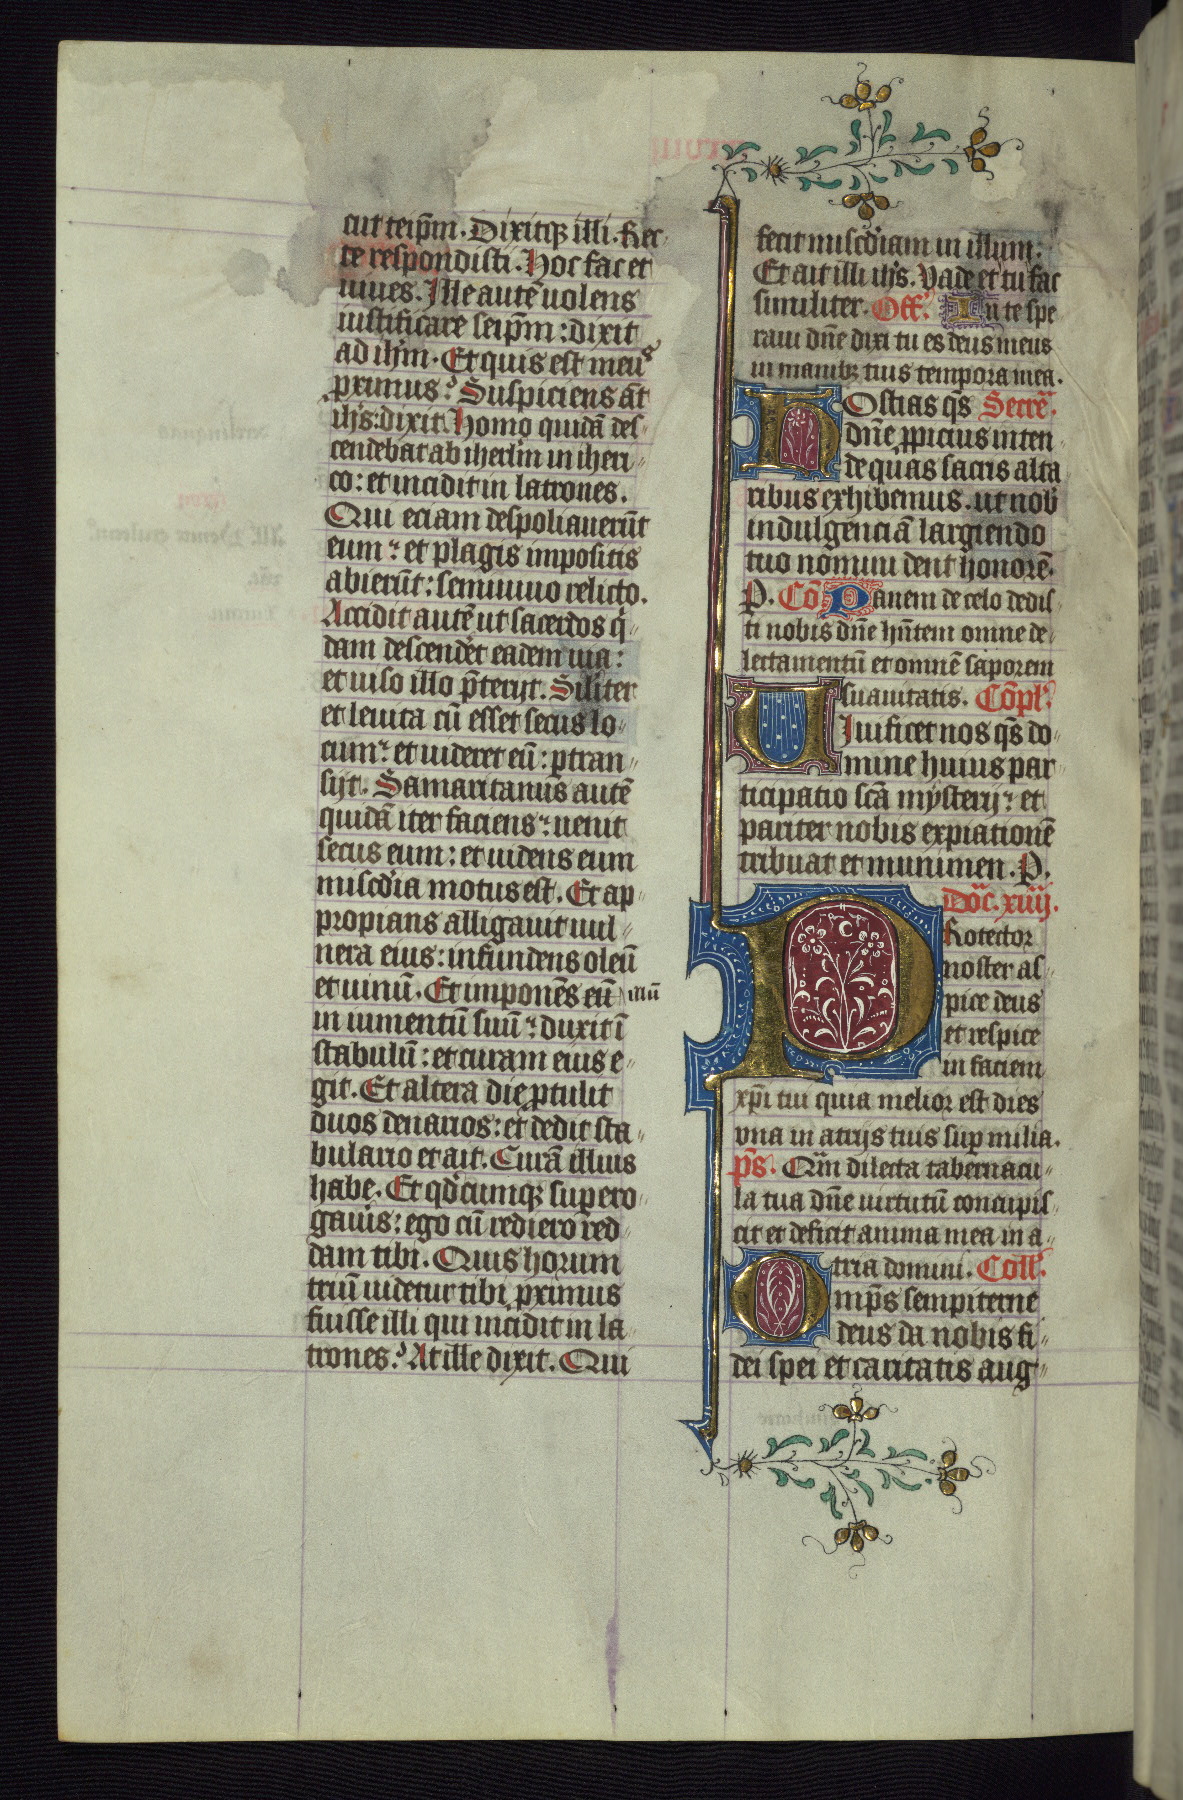 cut teip̄m. Dixitqꝫ illi. Rec-
te respondisti. Hoc fac et
uiues. Ille autē uolens
iustificare seip̄m: dixit
ad ih̄m. Et quis est meus
ꝓximus? Suspiciens aūt
ih̄s: dixit. Homo quidā des-
cendebat ab iherl̄m in iheri-
co: et incidit in latrones.
Qui eciam despoliauerūt
eum: et plagis impositis
abierūt: semiuiuo relicto.
Accidit autē ut sacerdos q̇-
dam descender̄et eadem uia:
et uiso illo p̄terijt. Sil̄iter
et leuita cū esset secus lo-
cum: et uideret eū: ꝑtran-
sijt. Samaritanus autē
quidā iter faciens: uenit
secus eum: et uidens eum
miscd̄ia motus est. Et ap-
propians alligauit uul-
nera eius: infundens oleū
et uinū. Et imponēs eū illū
in iumentū suū: duxit ī
stabulū: et curam eius e-
git. Et altera die ꝓtulit
duos denarios: et dedit sta-
bulario et ait. Curā illius
habe. Et qd̄cumqꝫ supero-
gauis: ego cū rediero red-
dam tibi. Quis horum
triū uidetur tibi ꝓximus
fuisse illi qui incidit in la-
trones? At ille dixit. Qui
fecit miscd̄iam in illum:
Et ait illi ih̄s. Vade et tu fac
similiter. Off̄. In te spe
raui dn̄e dixi tu es deus meus
in manibꝫ tuis tempora mea.
Hostias qs̄ Secre᷑.
dn̄e ꝓpicius inten-
de quas sacris alta
ribus exhibemus. ut nob̄
indulgenciā largiendo
tuo nomini dent honorē.
P. Cō Panem de celo dedis-
ti nobis dn̄e hn̄tem omne de-
lectamentū et omnē saporem
suauitatis. Cōpl᷑.
Viuificet nos qs̄ do-
mine huius par-
ticipatio scā mysterij: et
pariter nobis expiationē
tribuat et munimen. P.
Dōc. xiiij.
Protector
noster as-
pice deus
et respice
in faciem
xp̄i tui quia melior est dies
vna in atrijs tuis suꝑ milia.
p̄s. Qm̄ dilecta tabernacu-
la tua dn̄e uirtutū concupis-
cit et deficit anima mea in a-
tria domini. Coll᷑.
Omp̄s sempiterne
deus da nobis fi-
dei spei et caritatis aug-